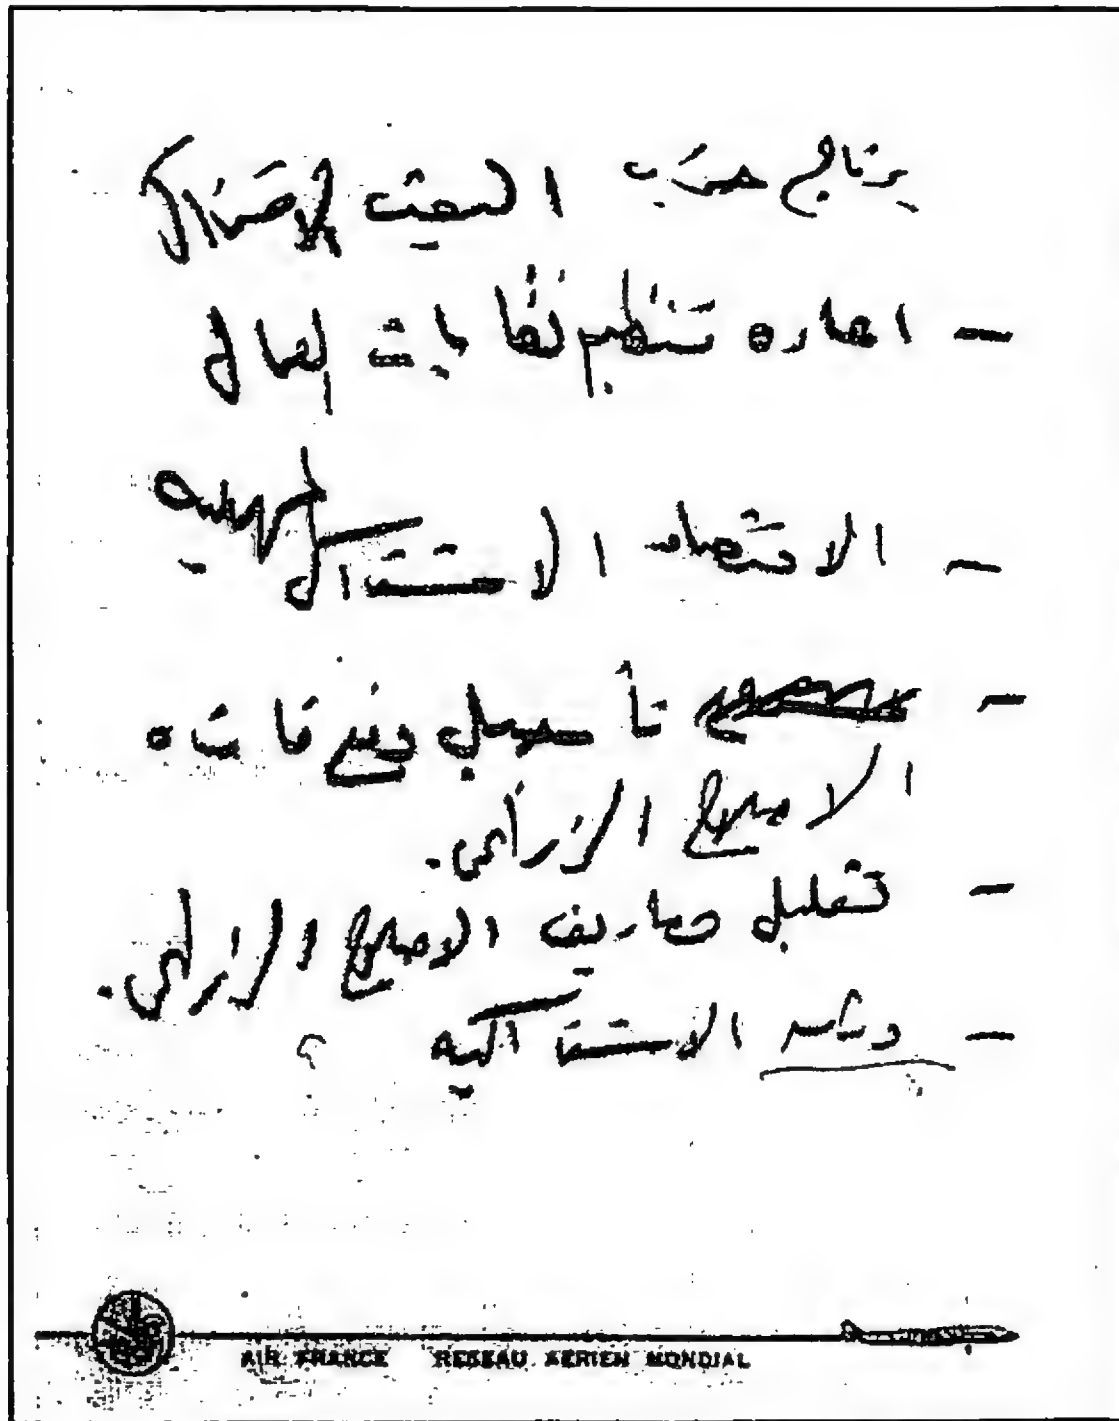 برنامج حزب البعث الاشتراكي
- اعاده تنظيم نقابات العمال
- الاقتصاد الاشتراكي
- تأ قات
الاصلاح الزراعي.
- تقليل مصاريف الاصلاح الزراعي.
- الاشتراكيه ؟
AIR FRANCE RESEAU AERIEN MONDIAL